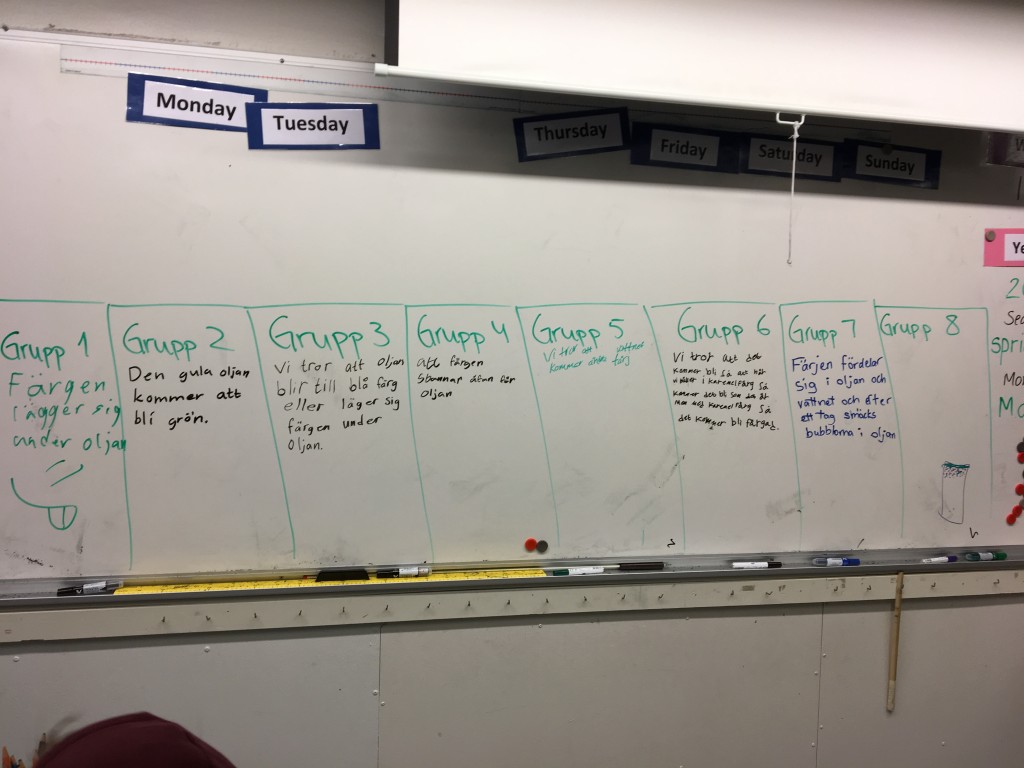 Monday
Tuesday
Thursday
Friday
Saturday
Sunday
Ye
Grupp 1
Färgen
lägger sig
under oljan
Grupp 2
Den gula oljan
kommer att
bli grön.
Grupp 3
Vi tror att oljan
blir till blå färg
eller läger sig
färgen under
oljan.
Grupp 4
att färgen
Stannar
oljan
Grupp 5
Vi tror att vattnet
kommer ändra färg
Grupp 6
Vi tror att det
kommer bli så att när
i karemellfärg så
kommer det bli som det är
men med karemellfärg så
det kommer bli färgad.
Grupp 7
Färjen fördelar
sig i oljan och
vattnet och efter
ett tag smäcks
bubblorna i oljan
Grupp 8